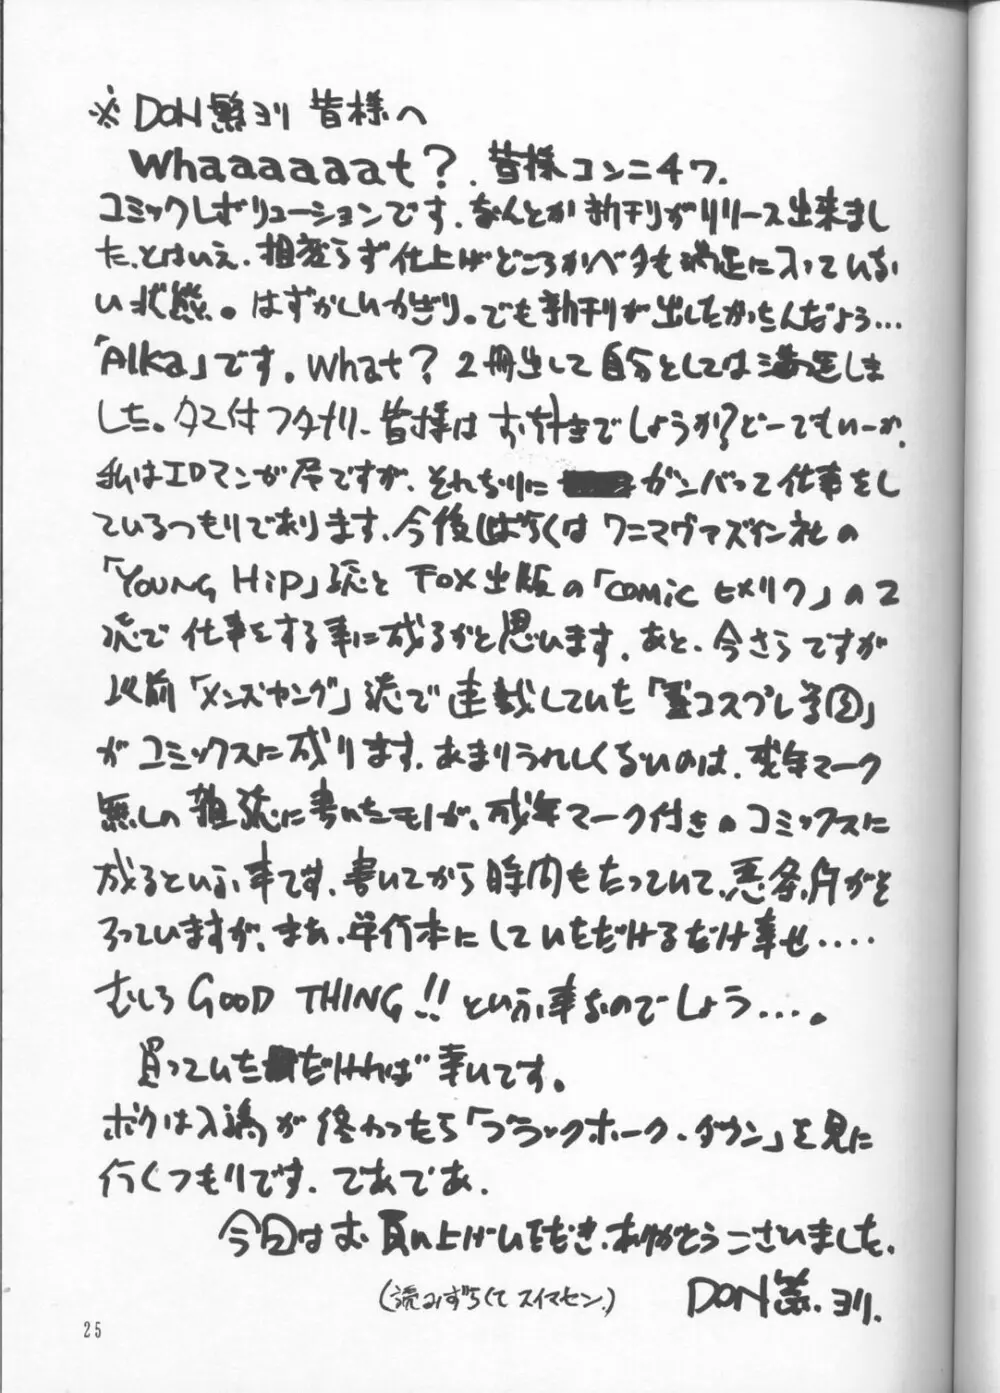 ※DON繁ヨリ 皆様へ
Whaaaaaat?. 皆様コンニチワ.
コミックレボリューションです. なんとか新刊がリリース出来まし
た. とはいえ. 相変らず仕上げどころかベタも満足に入っていな
い状態。はずかしいかぎり。でも新刊が出したかったんだよう…
「Alka」です。What? 2冊出して自分としては満足しま
した。タマ付フタナリ. 皆様はお好きでしょうか?どーでもいーか.
私はエロマンガ屋ですが、それなりに ガンバって仕事をし
ているつもりであります. 今後しばらくは ワニマガジン社の
「YOUNG HIP」誌と FOX出版の「COMIC ヒメクリ」の2
誌で仕事をする事に成るかと思います. あと、今さらですが
以前「メンズヤング」誌で連載していた「コスプレ学園」
がコミックスに成ります. あまりうれしくないのは、成年マーク
無しの雑誌に書いたモノが、成年マーク付きのコミックスに
成るという事です. 書いてから時間もたっていて、悪条件がそ
ろっていますが、まあ、単行本にしていただけるだけ幸せ‥‥
むしろ GOOD THING!! という事なのでしょう…。
買っていただければ 幸いです。
ボクは入稿が終わったら「ブラックホーク・ダウン」を見に
行くつもりです. であであ.
今回はお買い上げいただき、ありがとうございました.
(読みずらくて スイマセン.)
DON繁.ヨリ.
25